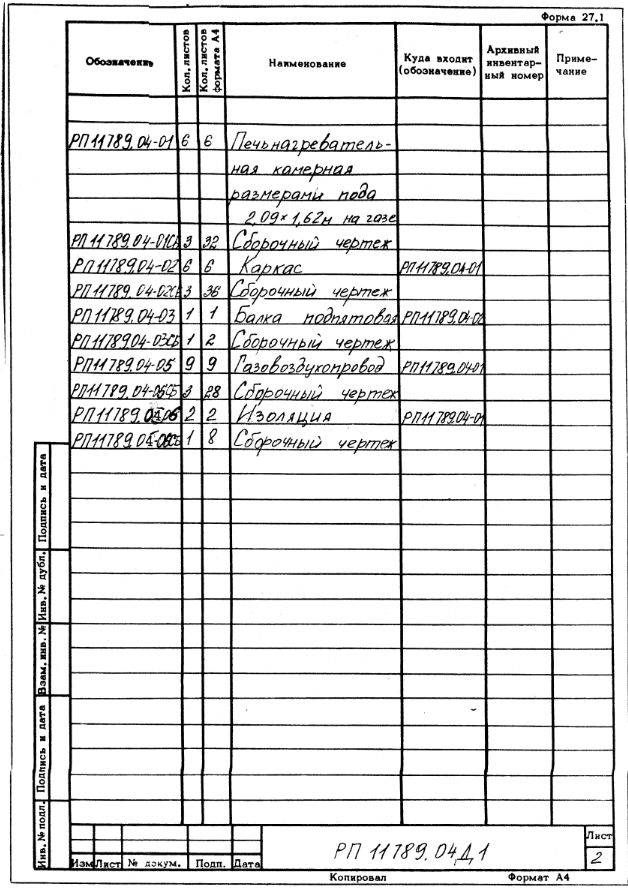 Форма 27.1
Обозначение Кол. листов Кол. листов формата А4 Наименование Куда входит (обозначение) Архивный инвентар- ный номер Приме- чание
РП11789.04-01 6 6 Печь нагреватель-
ная камерная
размерами пода
2,09×1,62м на газе
РП11789.04-01СБ 3 32 Сборочный чертеж
РП11789.04-02 6 6 Каркас РП11789.04-01
РП11789.04-02СБ 3 36 Сборочный чертеж
РП11789.04-03 1 1 Балка подпятовая РП11789.04-02
РП11789.04-03СБ 1 2 Сборочный чертеж
РП11789.04-05 9 9 Газовоздухопровод РП11789.04-01
РП11789.04-05СБ 3 28 Сборочный чертеж
РП11789.04-06 2 2 Изоляция РП11789.04-01
РП11789.04-06СБ 1 8 Сборочный чертеж
Подпись и дата
Инв. № дубл.
Взам. инв. №
Подпись и дата
Инв. № подл.
РП 11789.04Д1
Лист
2
Изм Лист № докум. Подп. Дата
Копировал Формат А4